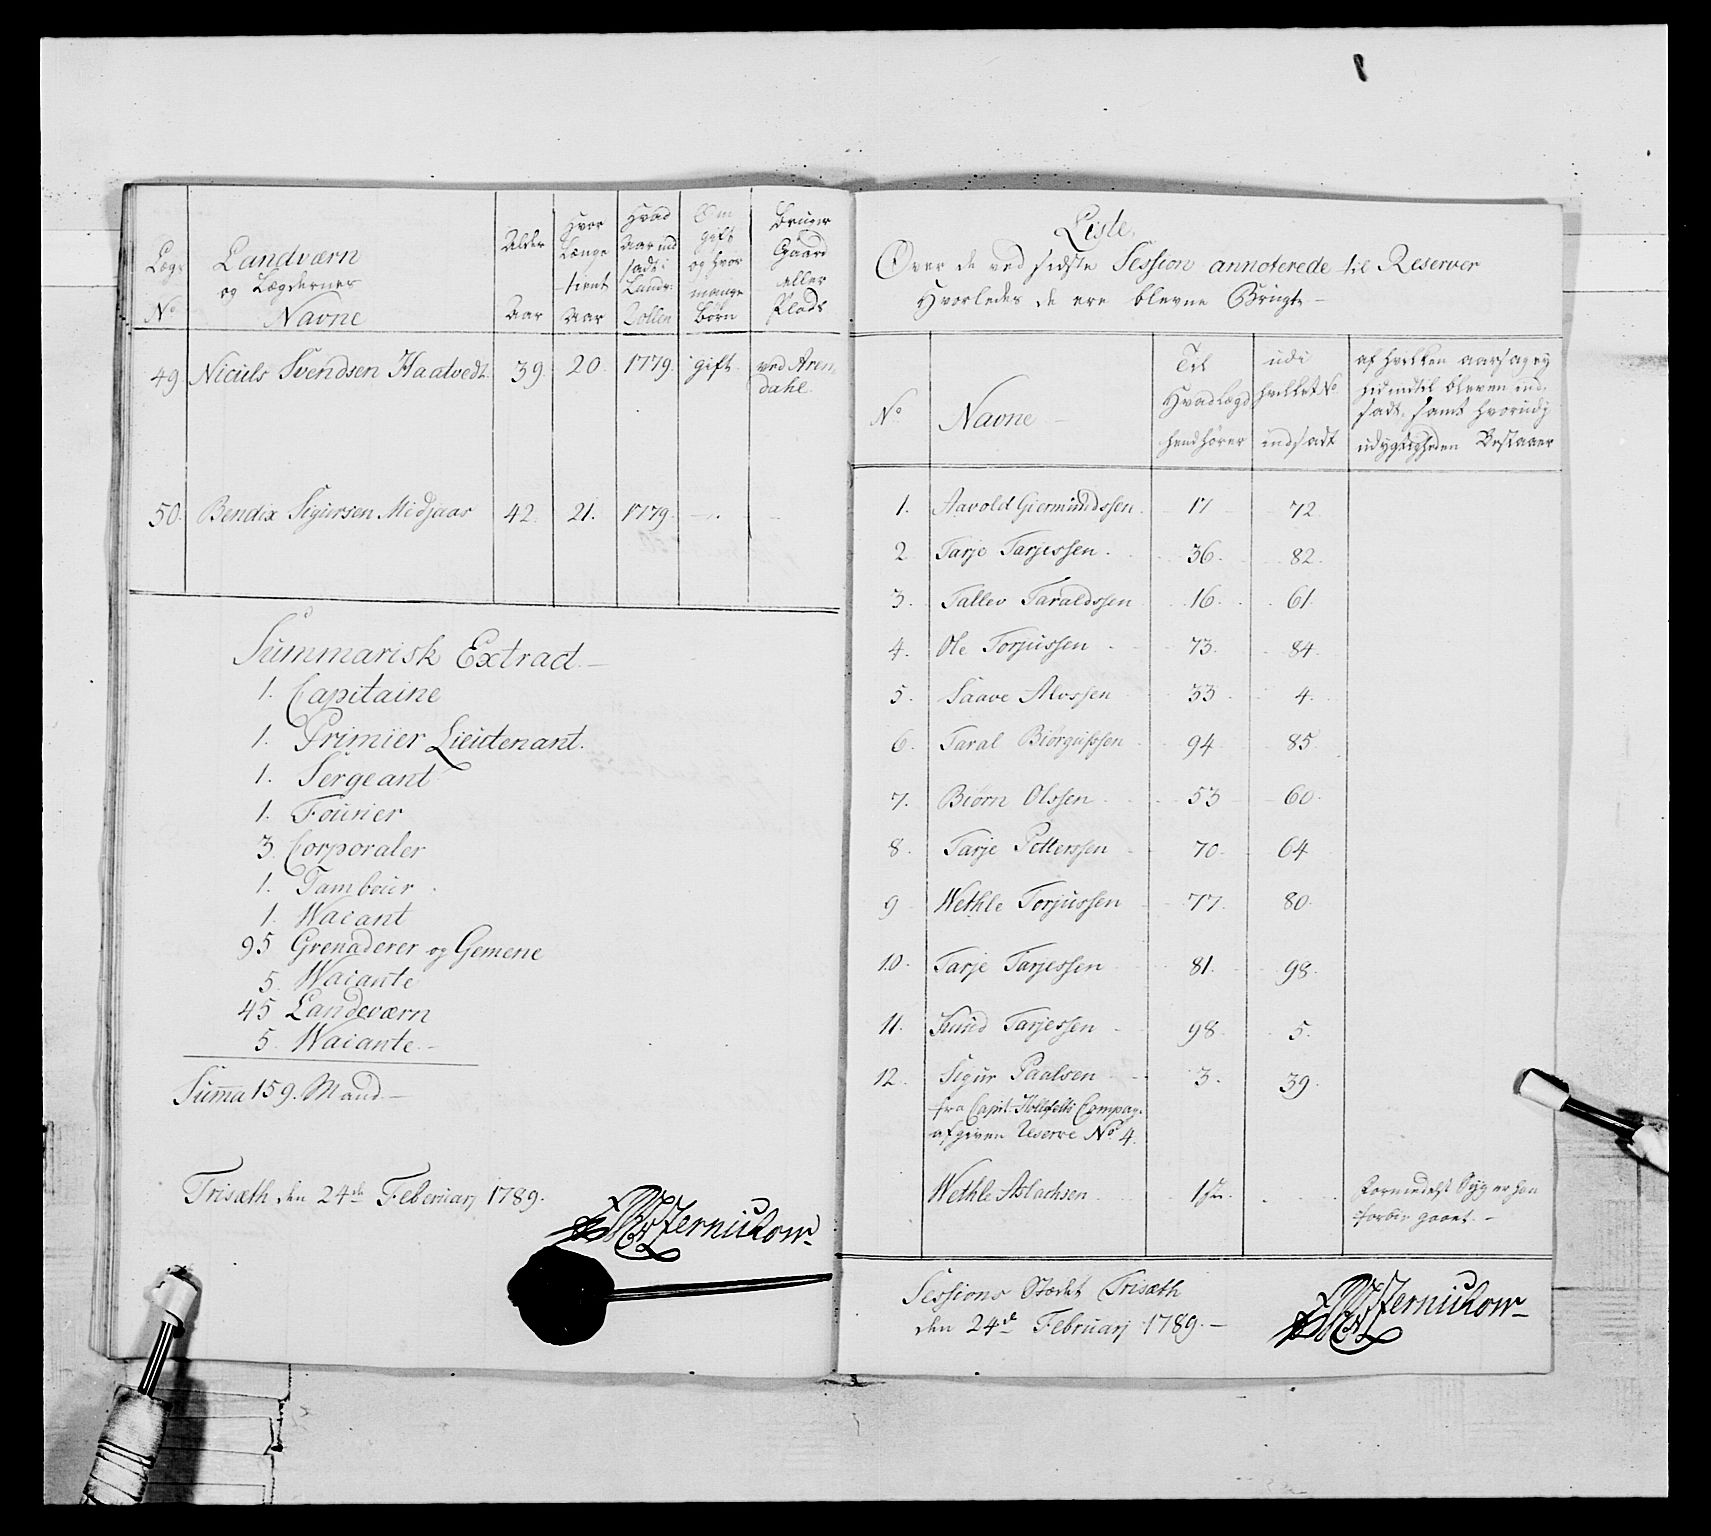 Læg: No
Landværn og Lægdernes Navne
Alder Aar
Hvor Længe tient Aar
Hvad Aar ind sadt i Landv: Rollen
Om gift og hvor mange børn
Bruger Gaard eller Plads
49 Niciels Svendsen Haatvedt 39 20 1779 gift ved Aren dahl
50. Bendix Sigursen Midjaas 42. 21. 1779. — —
Summarisk Extract —
1. Capitaine
1. Primier Lieutenant.
1. Sergeant
1. Fourier
3. Corporaler
1. Tambour
1. Wacant
95 Grenaderer og Gemene
5. Wacante
45 Landeværn
5. Wacante —
Summa 159. Mand —
Trisæth den 24de Februarj 1789.
Liste.
Over de ved sidste Session annoterede til Reserver
Hvorledes de ere blevne Brugte —
No
Navne —
Til Hvad Lægd henhører
udi hvilket No indsadt
af hvilken aarsag ej
hid indtil bleven ind
sadt, samt hvorudj
udygtigheden Bestaaer
1. Aavold Giermundssen. 17 72
2. Tarje Tarjessen. 36. 82.
3. Tallev Taraldssen 16. 61.
4. Ole Torjussen 73. 84.
5. Saave Alvssen 33 4.
6. Taral Biørgufssen 94 85.
7. Biørn Olssen 53 60.
8. Tarje Petterssen 70. 64
9 Wethle Torjussen 77. 80.
10. Tarje Tarjessen 81. 98.
11. Knud Tarjessen 98. 5.
12. Sigur Paalsen 3. 39.
fra Capit: Compag:
afgiven Reserve No 4.
Wethle Aslachsen Formedelst Syg er han
forbie gaaet. —
Sessions Stædet Trisæth
den 24de Februarj 1789. —